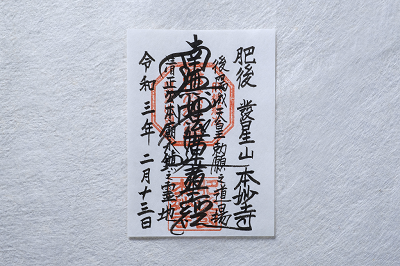 肥後 發星山 本妙寺
後陽成天皇勅願之道場
南無妙法蓮華経
清正公本廟
之霊地
令和三年二月十三日